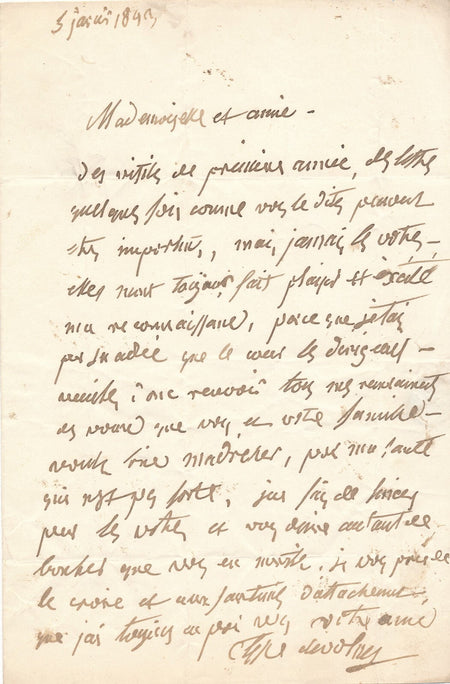 5 janvier 1843
Mademoiselle et amie -
des visites de première année, des lettres
quelques fois comme vous le dites peuvent
être importun, mais jamais les votres -
elles m'ont toujours fait plaisir et excité
ma reconnaissance, parce que j'étais
persuadée que le cœur les dirigeait -
recevoir tous mes remerciements
des vœux que vous et votre famille -
m'adresser, pour ma santé
qui n'est pas forte, j'en fais de sincères
pour les votres et vous désire autant de
bonheur que vous en méritez. je vous prie de
le croire et aux sentiments d'attachement -
que j'ai toujours eu pour vous votre amie